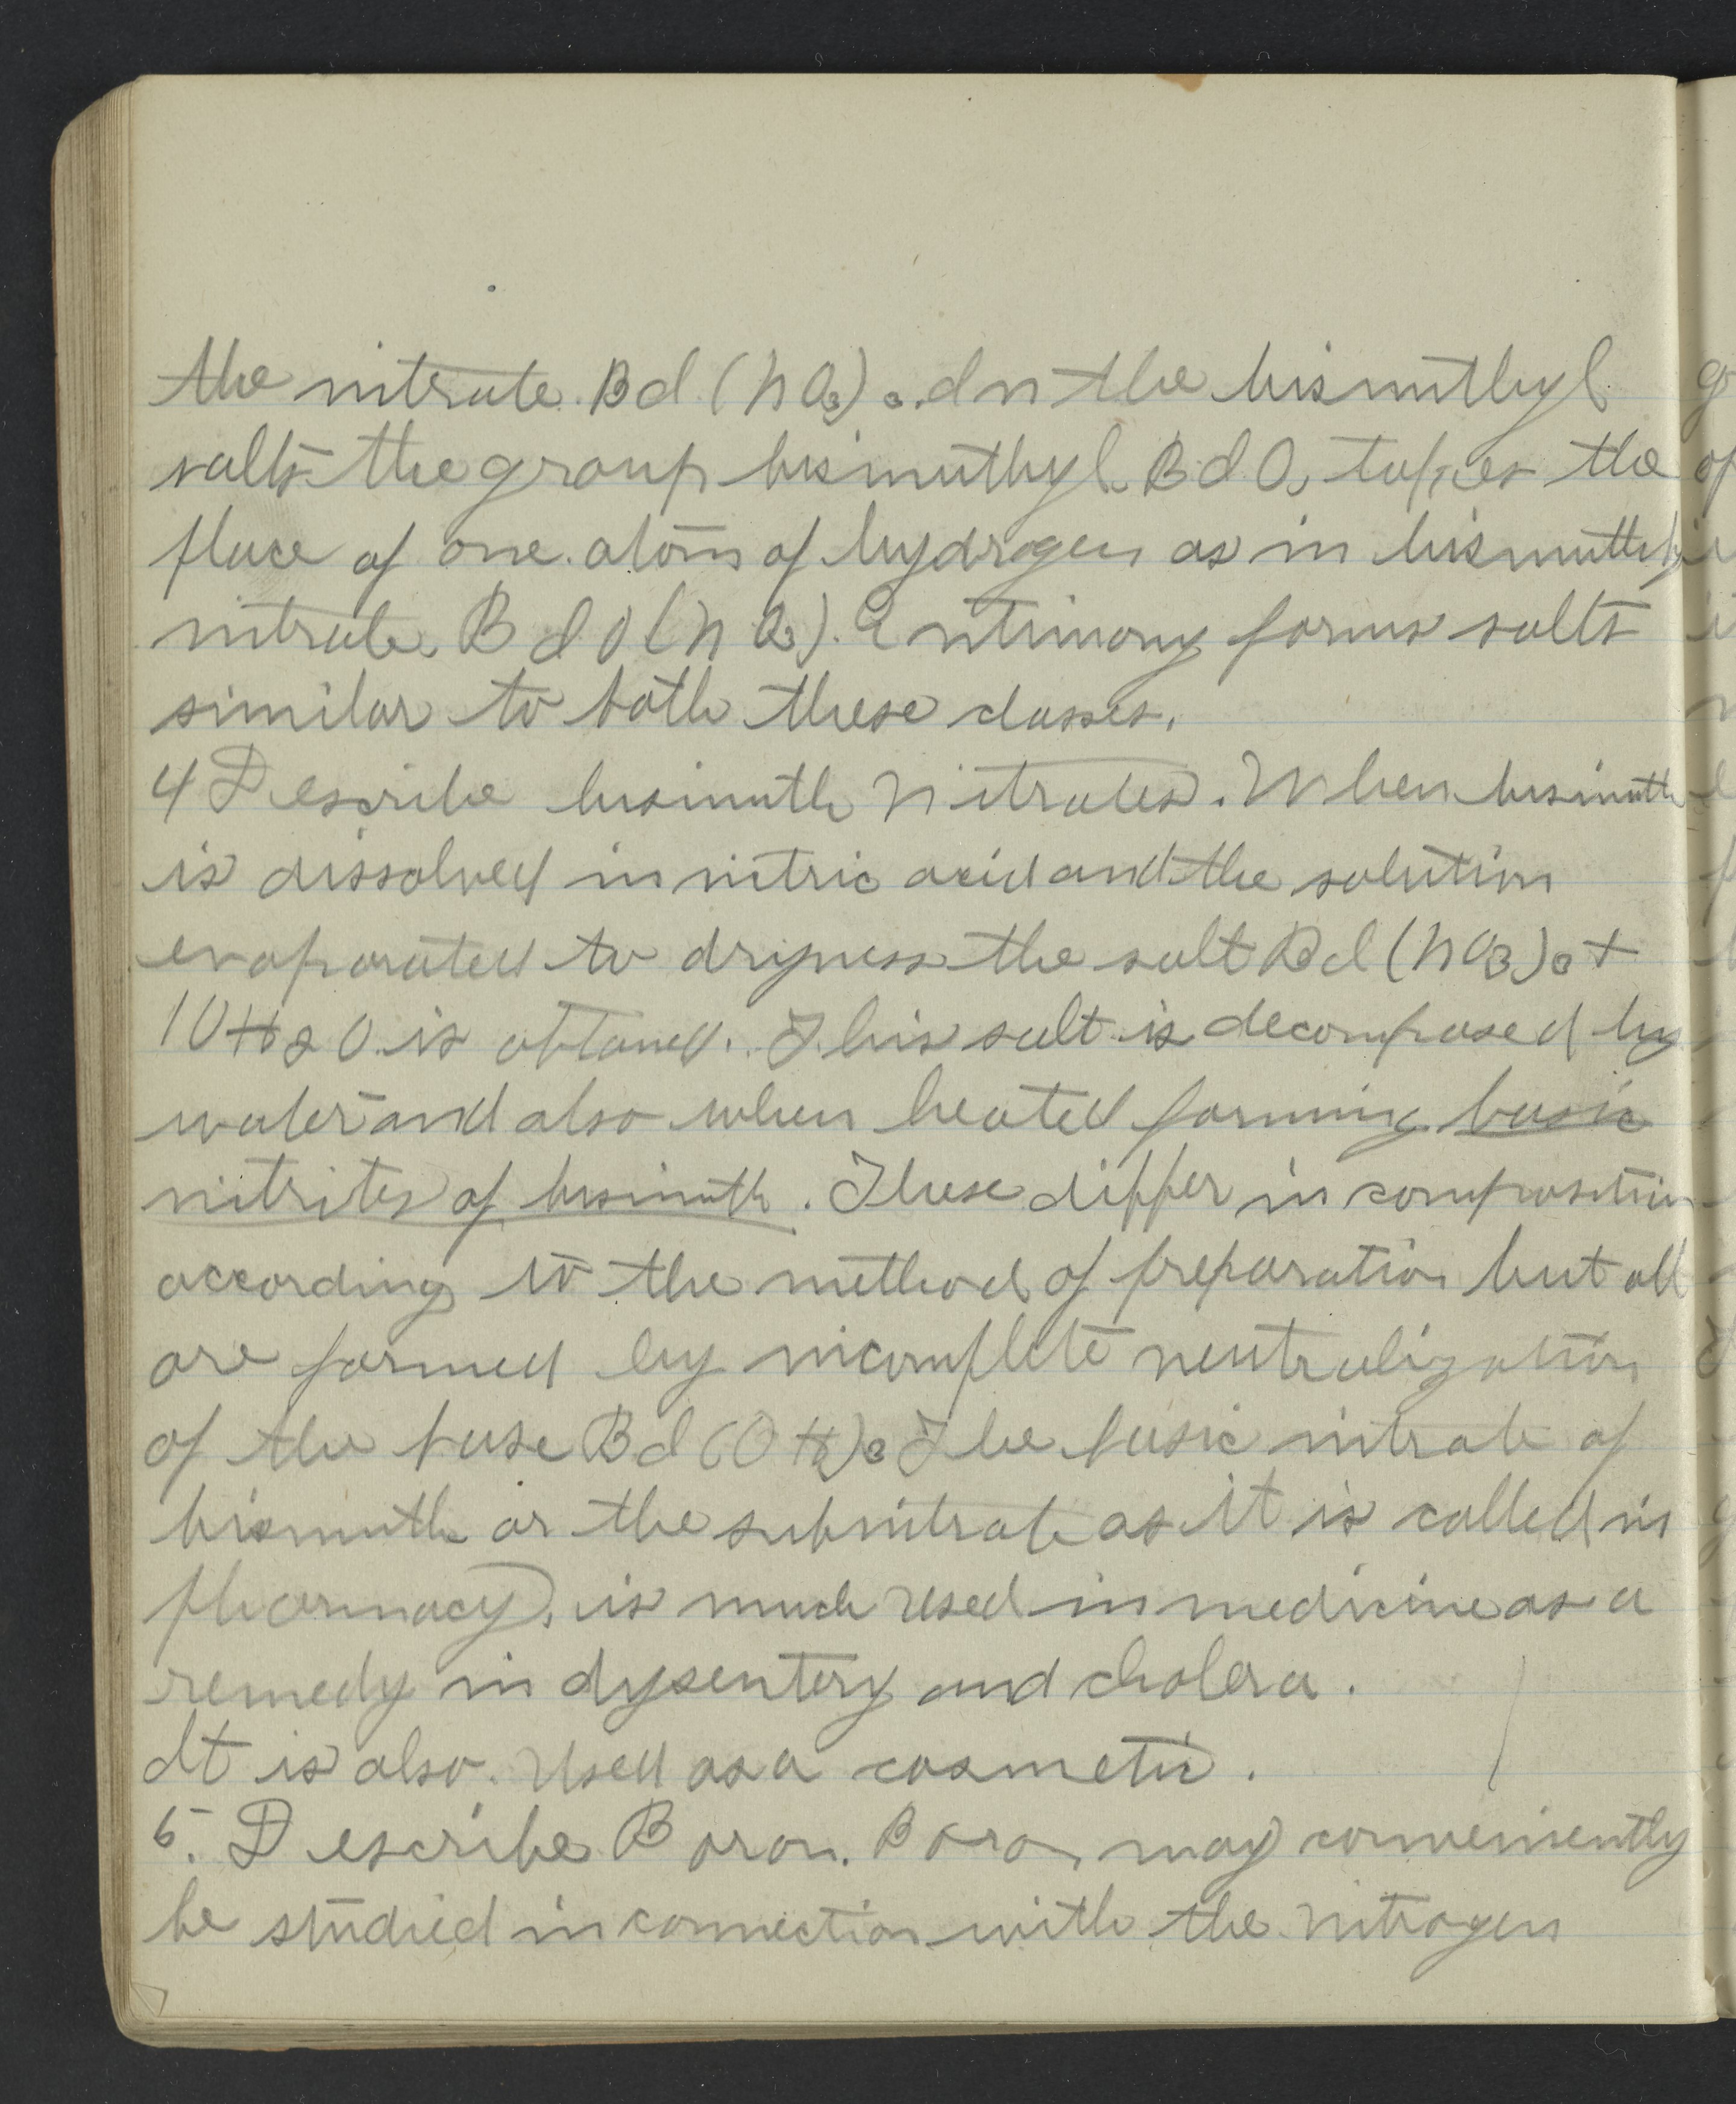 the nitrate. Bi(NO3)3. In the bismuthyl
salts the group bismuthyl, BiO, takes the
place of one atom of hydrogen as in bismuthyl
nitrate, BiO(NO3). Antimony forms salts
similar to both these classes.
4 Describe bismuth Nitrates. When bismuth
is dissolved in nitric acid and the solution
evaporated to dryness the salt Bi(NO3)3+
10H2O is obtaned. This salt is decomposed by
water and also when heated forming basic
nitrites of bismuth. These differ in composition
according to the method of preparation but all
are formed by incomplete neutralization
of the base Bi(OH)3 The basic nitrate of
bismuth or the subnitrate as it is called in
pharmacy, is much used in medicine as a
remedy in dysentery and cholera.
It is also used as a cosmetic.
5. Describe Boron. Boron may conveniently
be studied in connection with the nitrogen